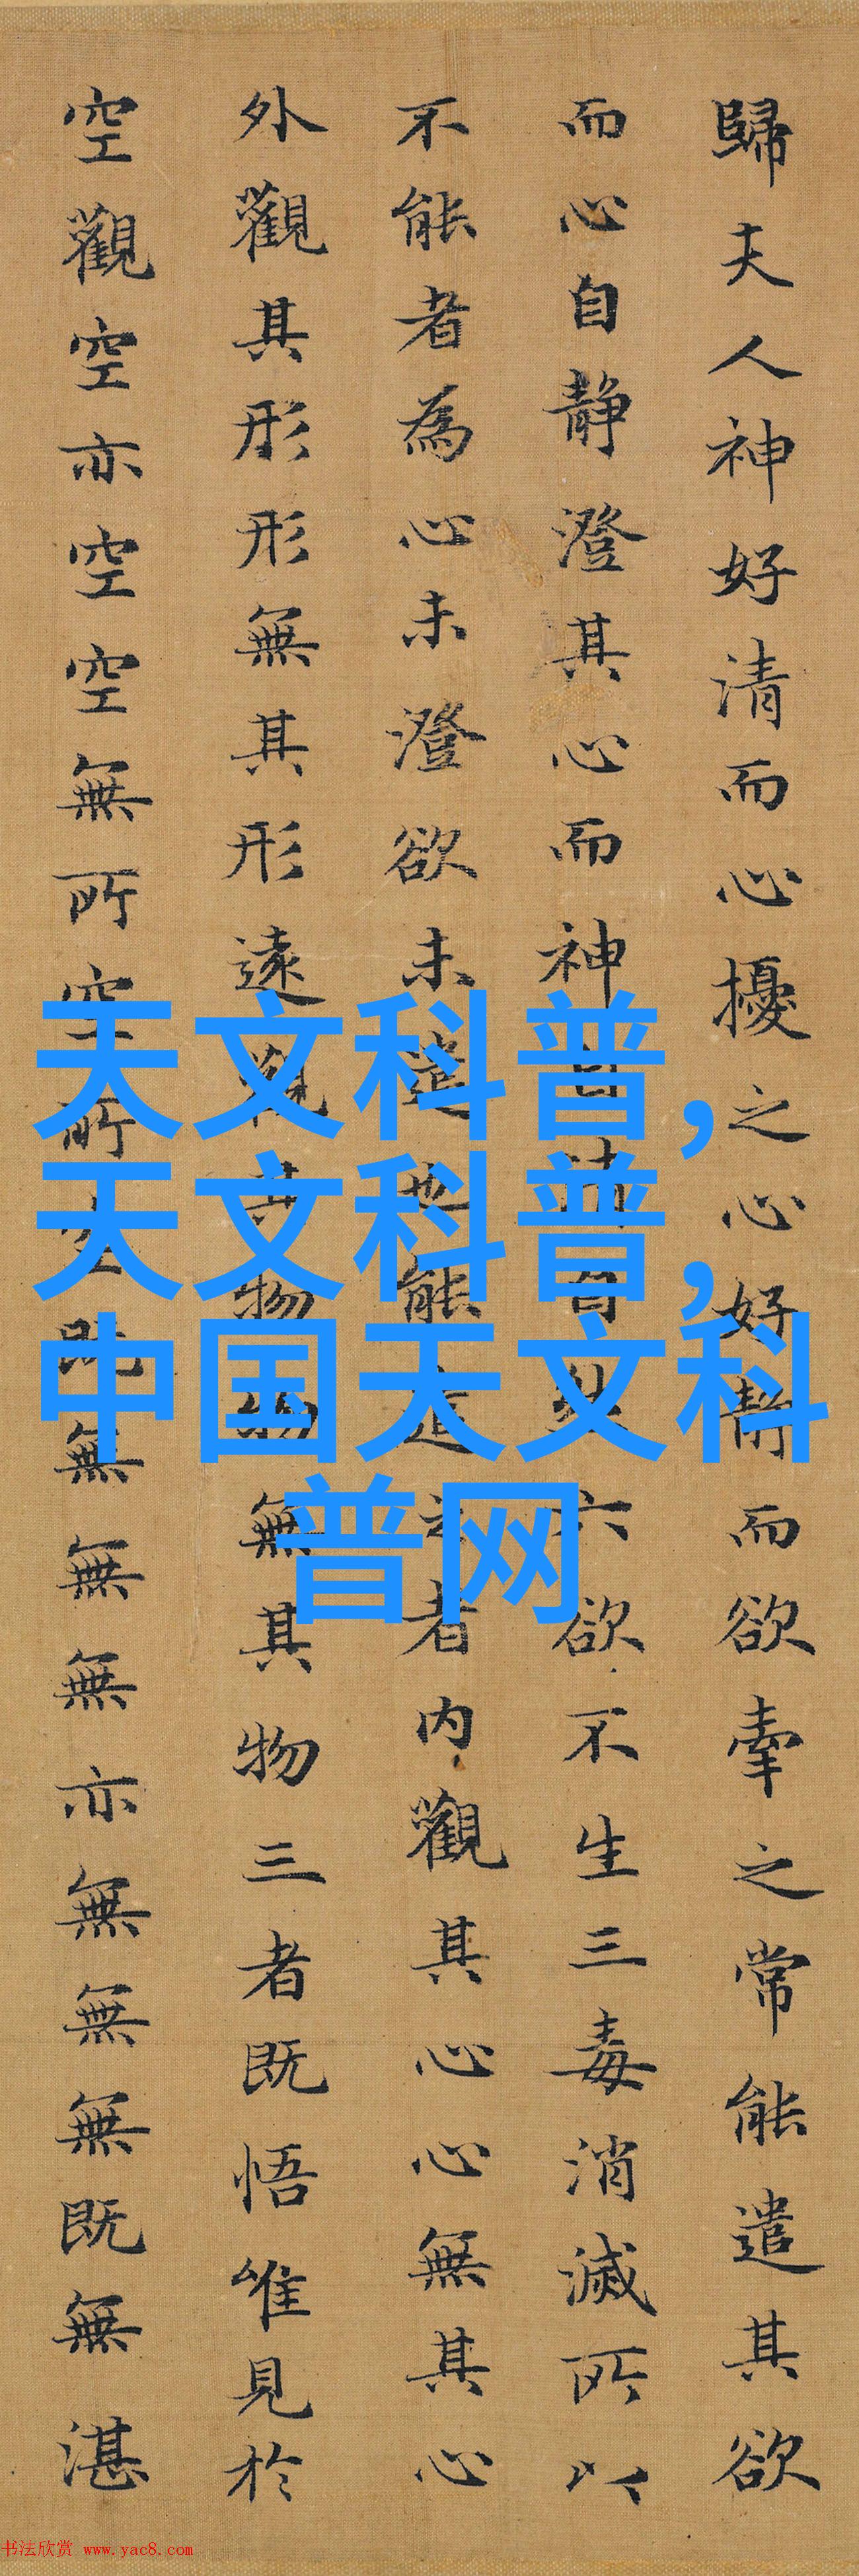 歸夫人神好清而心擾之心好靜而欲牽之常能遣其欲
而心自靜澄其心而神自清自然六欲不生三毒消滅所以
不能者為心未澄欲未遣也能遣之者内觀其心心無其心
外觀其形形無其形遠觀其物物無其物三者既悟唯見於
空觀空亦空空無所空所空既無無無亦無無無既無湛
天文科普,
天文科普,
中国天文科
普网
书法欣赏 www.yac8.com